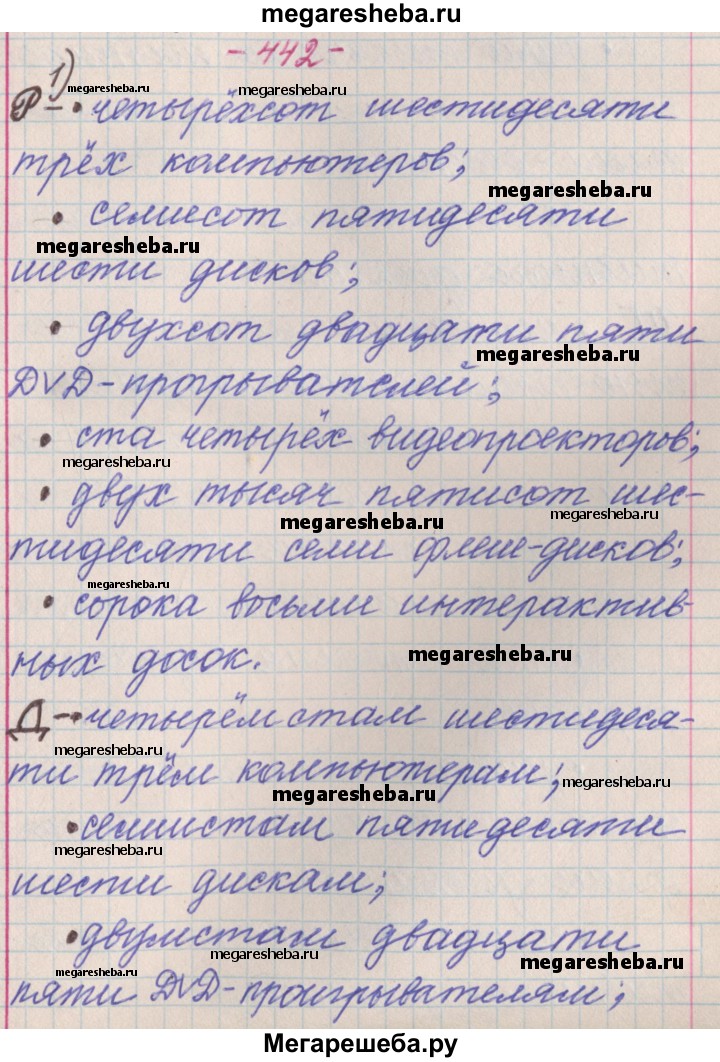 megaresheba.ru
- 442 -
1)
megaresheba.ru
Р - • четырёхсот шестидесяти
трёх компьютеров;
megaresheba.ru
• семиесот пятидесяти
megaresheba.ru
шести дисков;
• двухсот двадцати пяти
megaresheba.ru
DVD-прогрывателей;
• ста четырёх видеопроекторов;
megaresheba.ru
• двух тысяч пятисот шес-
megaresheba.ru
megaresheba.ru
тидесяти семи флеш-дисков;
megaresheba.ru
• сорока восьми интерактив-
ных досок.
megaresheba.ru
Д - • четырёмстам шестидеся-
megaresheba.ru
ти трём компьютерам;
megaresheba.ru
megaresheba.ru
• семистам пятидесяти
megaresheba.ru
шести дискам;
• двумстам двадцати
megaresheba.ru
megaresheba.ru
megaresheba.ru
пяти DVD-проигрывателям;
Мегарешеба.ру